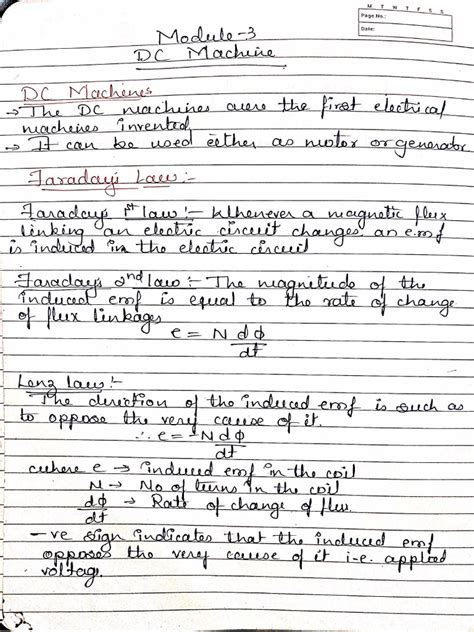 M T W T F S S
Page No.:
Date:
Module-3
DC Machine
DC Machines
→ The DC machines were the first electrical
machines invented
→ It can be used either as motor or generator
Faraday's Law :-
Faraday's 1st law :- Whenever a magnetic flux
linking an electric circuit changes, an emf
is induced in the electric circuit
Faraday's 2nd law :- The magnitude of the
induced emf is equal to the rate of change
of flux linkages
e = N dφ/dt
Lenz law :-
The direction of the induced emf is such as
to oppose the very cause of it.
∴ e = -N dφ/dt
where e → Induced emf in the coil
N → No of turns in the coil
dφ/dt → Rate of change of flux
-ve sign indicates that the induced emf
opposes the very cause of it i.e. applied
voltage.